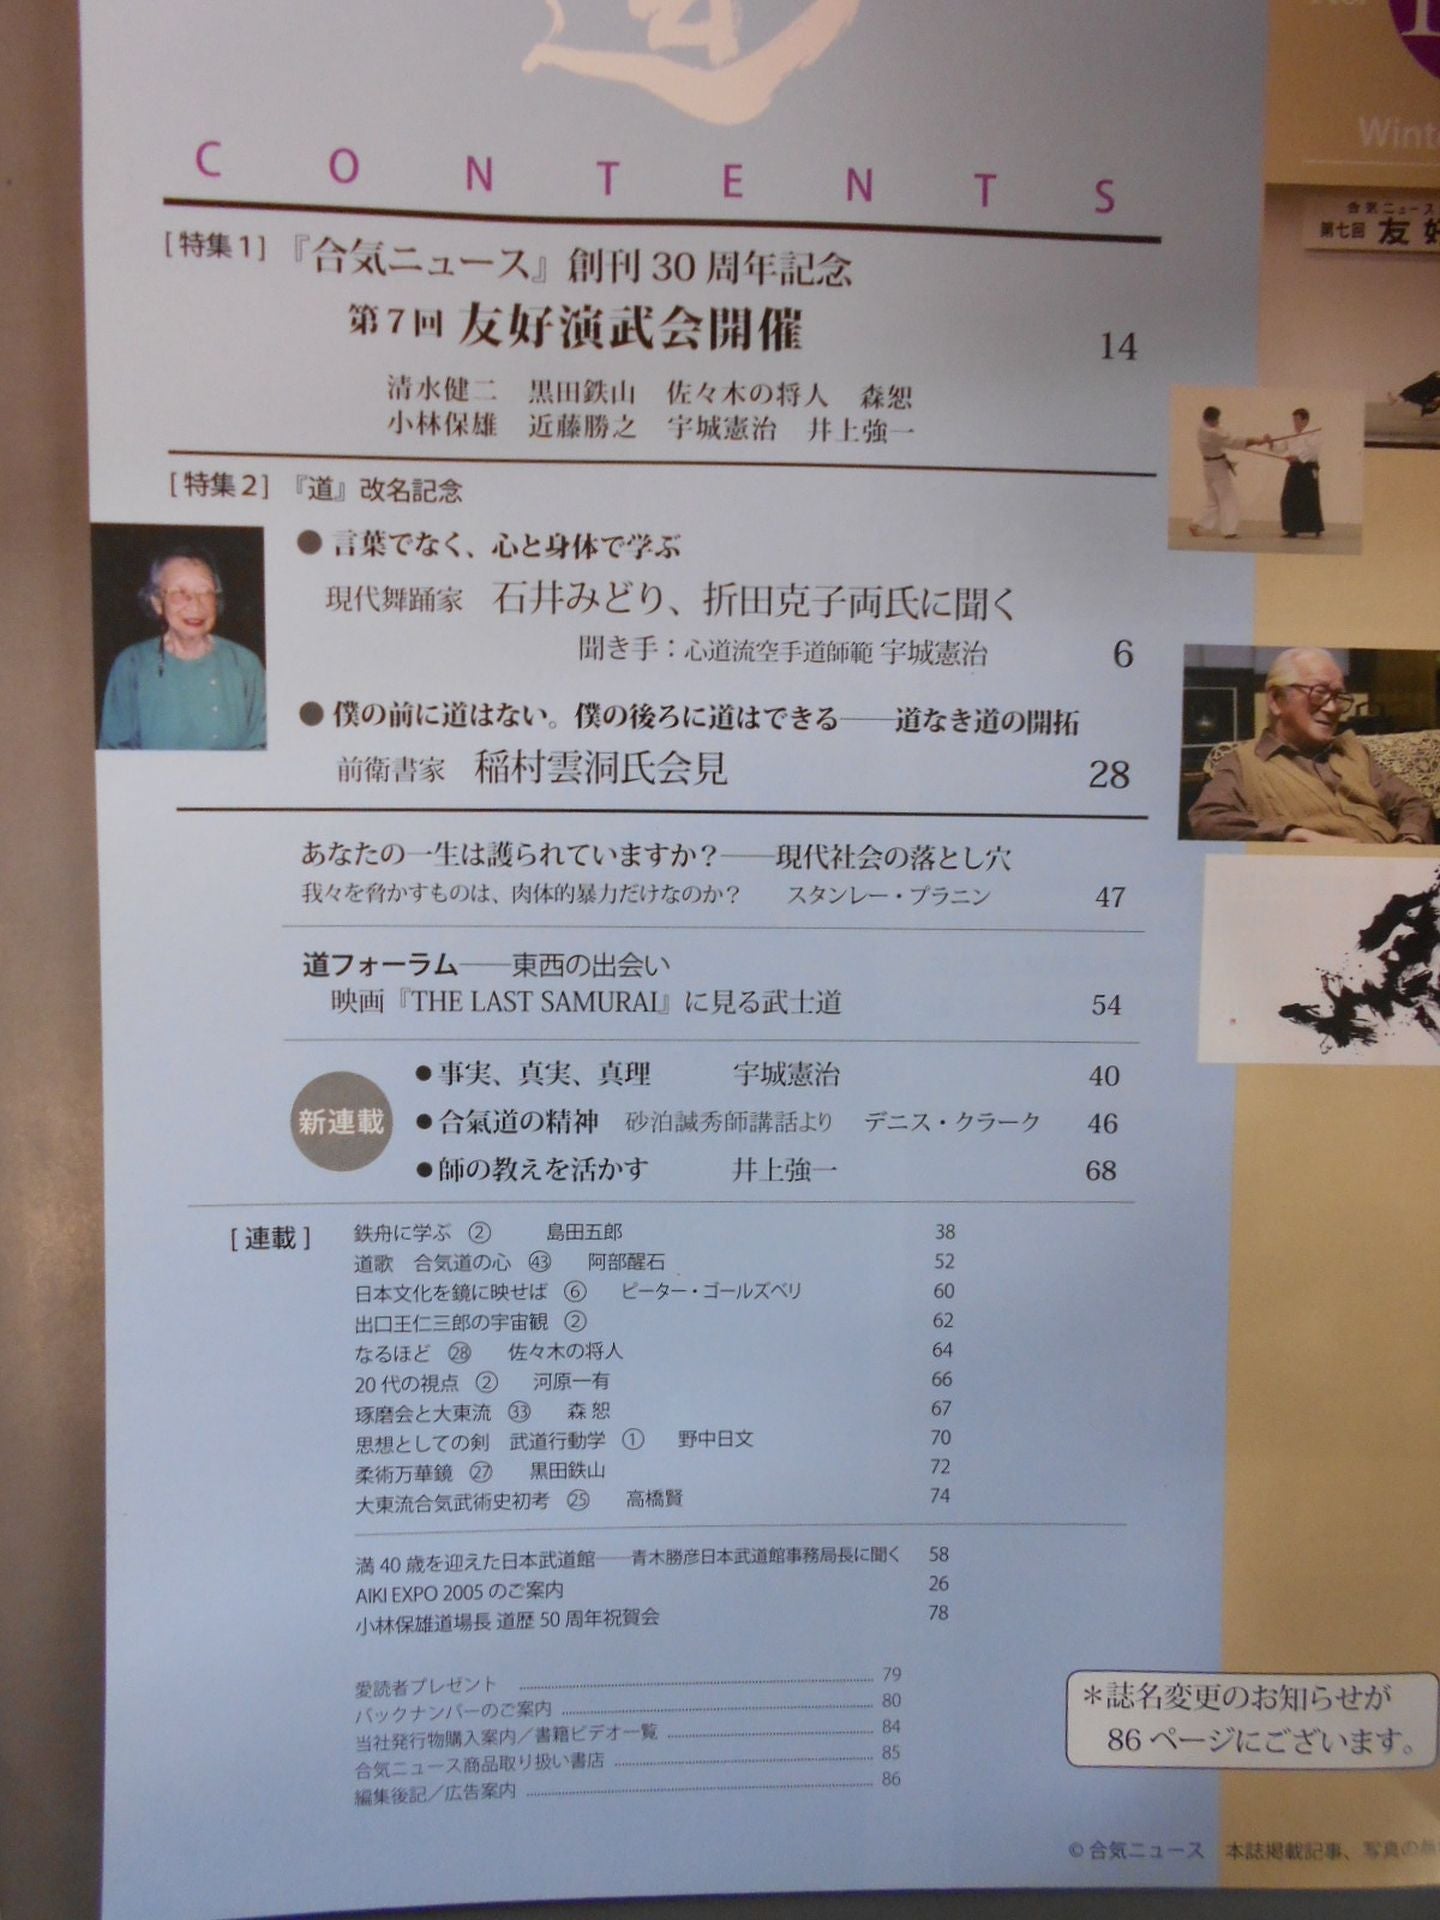 道
CONTENTS
[特集1] 『合気ニュース』創刊30周年記念
第7回 友好演武会開催 14
清水健二 黒田鉄山 佐々木の将人 森恕
小林保雄 近藤勝之 宇城憲治 井上強一
[特集2] 『道』改名記念
●言葉でなく、心と身体で学ぶ
現代舞踊家 石井みどり、折田克子両氏に聞く
聞き手:心道流空手道師範 宇城憲治 6
●僕の前に道はない。僕の後ろに道はできる——道なき道の開拓
前衛書家 稲村雲洞氏会見 28
あなたの一生は護られていますか?——現代社会の落とし穴
我々を脅かすものは、肉体的暴力だけなのか? スタンレー・プラニン 47
道フォーラム——東西の出会い
映画『THE LAST SAMURAI』に見る武士道 54
新連載
●事実、真実、真理 宇城憲治 40
●合氣道の精神 砂泊諴秀師講話より デニス・クラーク 46
●師の教えを活かす 井上強一 68
[連載]
鉄舟に学ぶ ② 島田五郎 38
道歌 合気道の心 ㊸ 阿部醒石 52
日本文化を鏡に映せば ⑥ ピーター・ゴールズベリ 60
出口王仁三郎の宇宙観 ② 62
なるほど ㉘ 佐々木の将人 64
20代の視点 ② 河原一有 66
琢磨会と大東流 ㉝ 森 恕 67
思想としての剣 武道行動学 ① 野中日文 70
柔術万華鏡 ㉗ 黒田鉄山 72
大東流合気武術史初考 ㉕ 高橋賢 74
満40歳を迎えた日本武道館——青木勝彦日本武道館事務局長に聞く 58
AIKI EXPO 2005のご案内 26
小林保雄道場長 道歴50周年祝賀会 78
愛読者プレゼント 79
バックナンバーのご案内 80
当社発行物購入案内/書籍ビデオ一覧 84
合気ニュース商品取り扱い書店 85
編集後記/広告案内 86
合気ニュース
第七回 友好
*誌名変更のお知らせが
86ページにございます。
© 合気ニュース 本誌掲載記事、写真の無